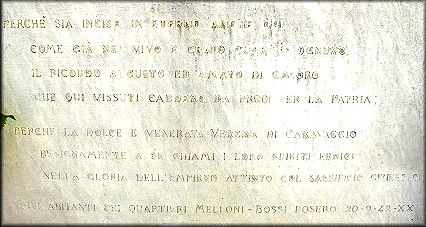 PERCHÈ SIA INCISO IN
COME GIÀ NEL VIVO E CUOR DI OGNUNO,
IL RICORDO AUGUSTO ED AMATO DI COLORO
CHE QUI VISSUTI CADDERO DA PRODI PER LA PATRIA;
PERCHÈ LA DOLCE E VENERATA VERGINE DI CARAVAGGIO
BENIGNAMENTE A SÈ CHIAMI I LORO SPIRITI EROICI
NELLA GLORIA DELL'EMPIREO ATTINTO COL SACRIFICIO
GLI ABITANTI DEI QUARTIERI MELLONI-BOSSI POSERO 20-9-42-XX